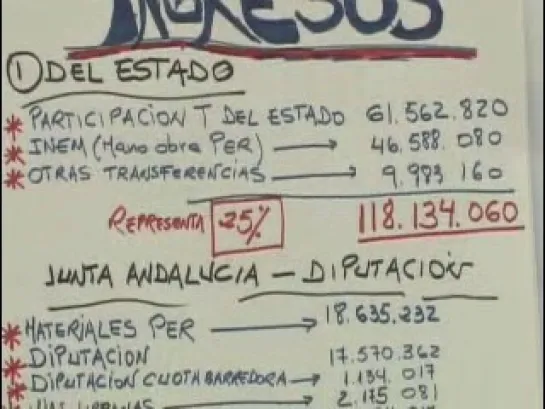 INGRESOS
① DEL ESTADO
* PARTICIPACION T DEL ESTADO 61.562.820
* INEM (Mano obra PER) → 46.588.080
* OTRAS TRANSFERENCIAS → 9.983.160
REPRESENTA 25% 118.134.060
JUNTA ANDALUCIA - DIPUTACIÓN
* MATERIALES PER → 18.635.232
* DIPUTACION 17.570.362
* DIPUTACION CUOTA BARREDORA → 1.134.017
* 2.175.081